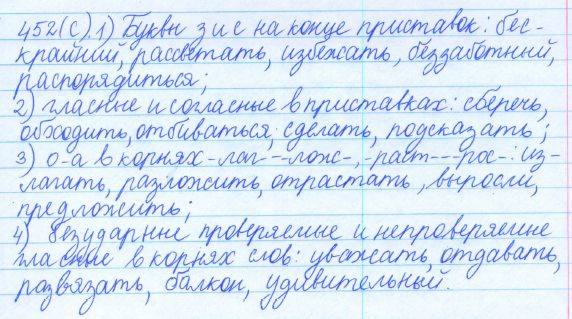 452(с). 1) Буквы з и с на конце приставок: бес-
крайний, рассветать, избежать, беззаботный,
распорядиться;
2) гласные и согласные в приставках: сберечь,
обходить, отбиваться, сделать, подсказать;
3) о-а в корнях -лаг- - -лож-, -раст- - -рос-: из-
лагать, разложить, отрастать, выросли,
предложить;
4) безударные проверяемые и непроверяемые
гласные в корнях слов: уважать, отдавать,
развязать, балкон, удивительный.